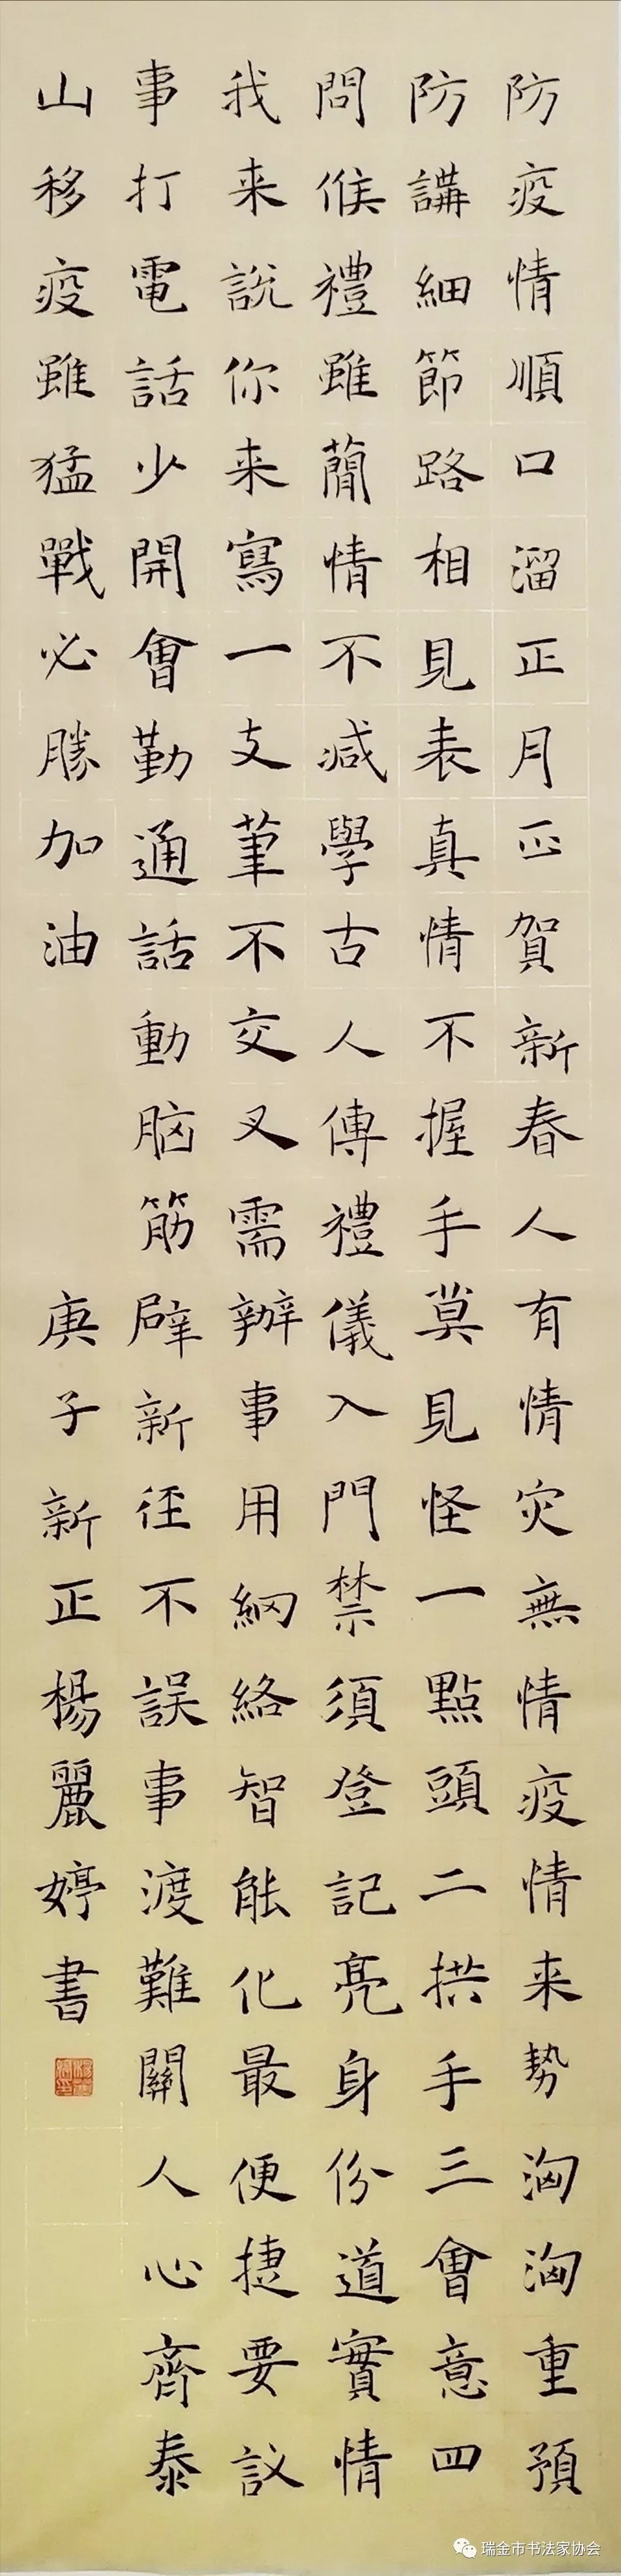 防疫情順口溜正月正賀新春人有情灾無情疫情来势洶洶重預
防講細節路相見表真情不握手莫見怪一點頭二拱手三會意四
問候禮雖蕳情不减學古人傳禮儀入門禁須登記亮身份道實情
我来說你来寫一支筆不交叉需辦事用網絡智能化最便捷要議
事打電話少開會勤通話動脑筋辟新径不誤事渡難關人心齊泰
山移疫雖猛戰必勝加油 庚子新正楊麗婷書
瑞金市书法家协会